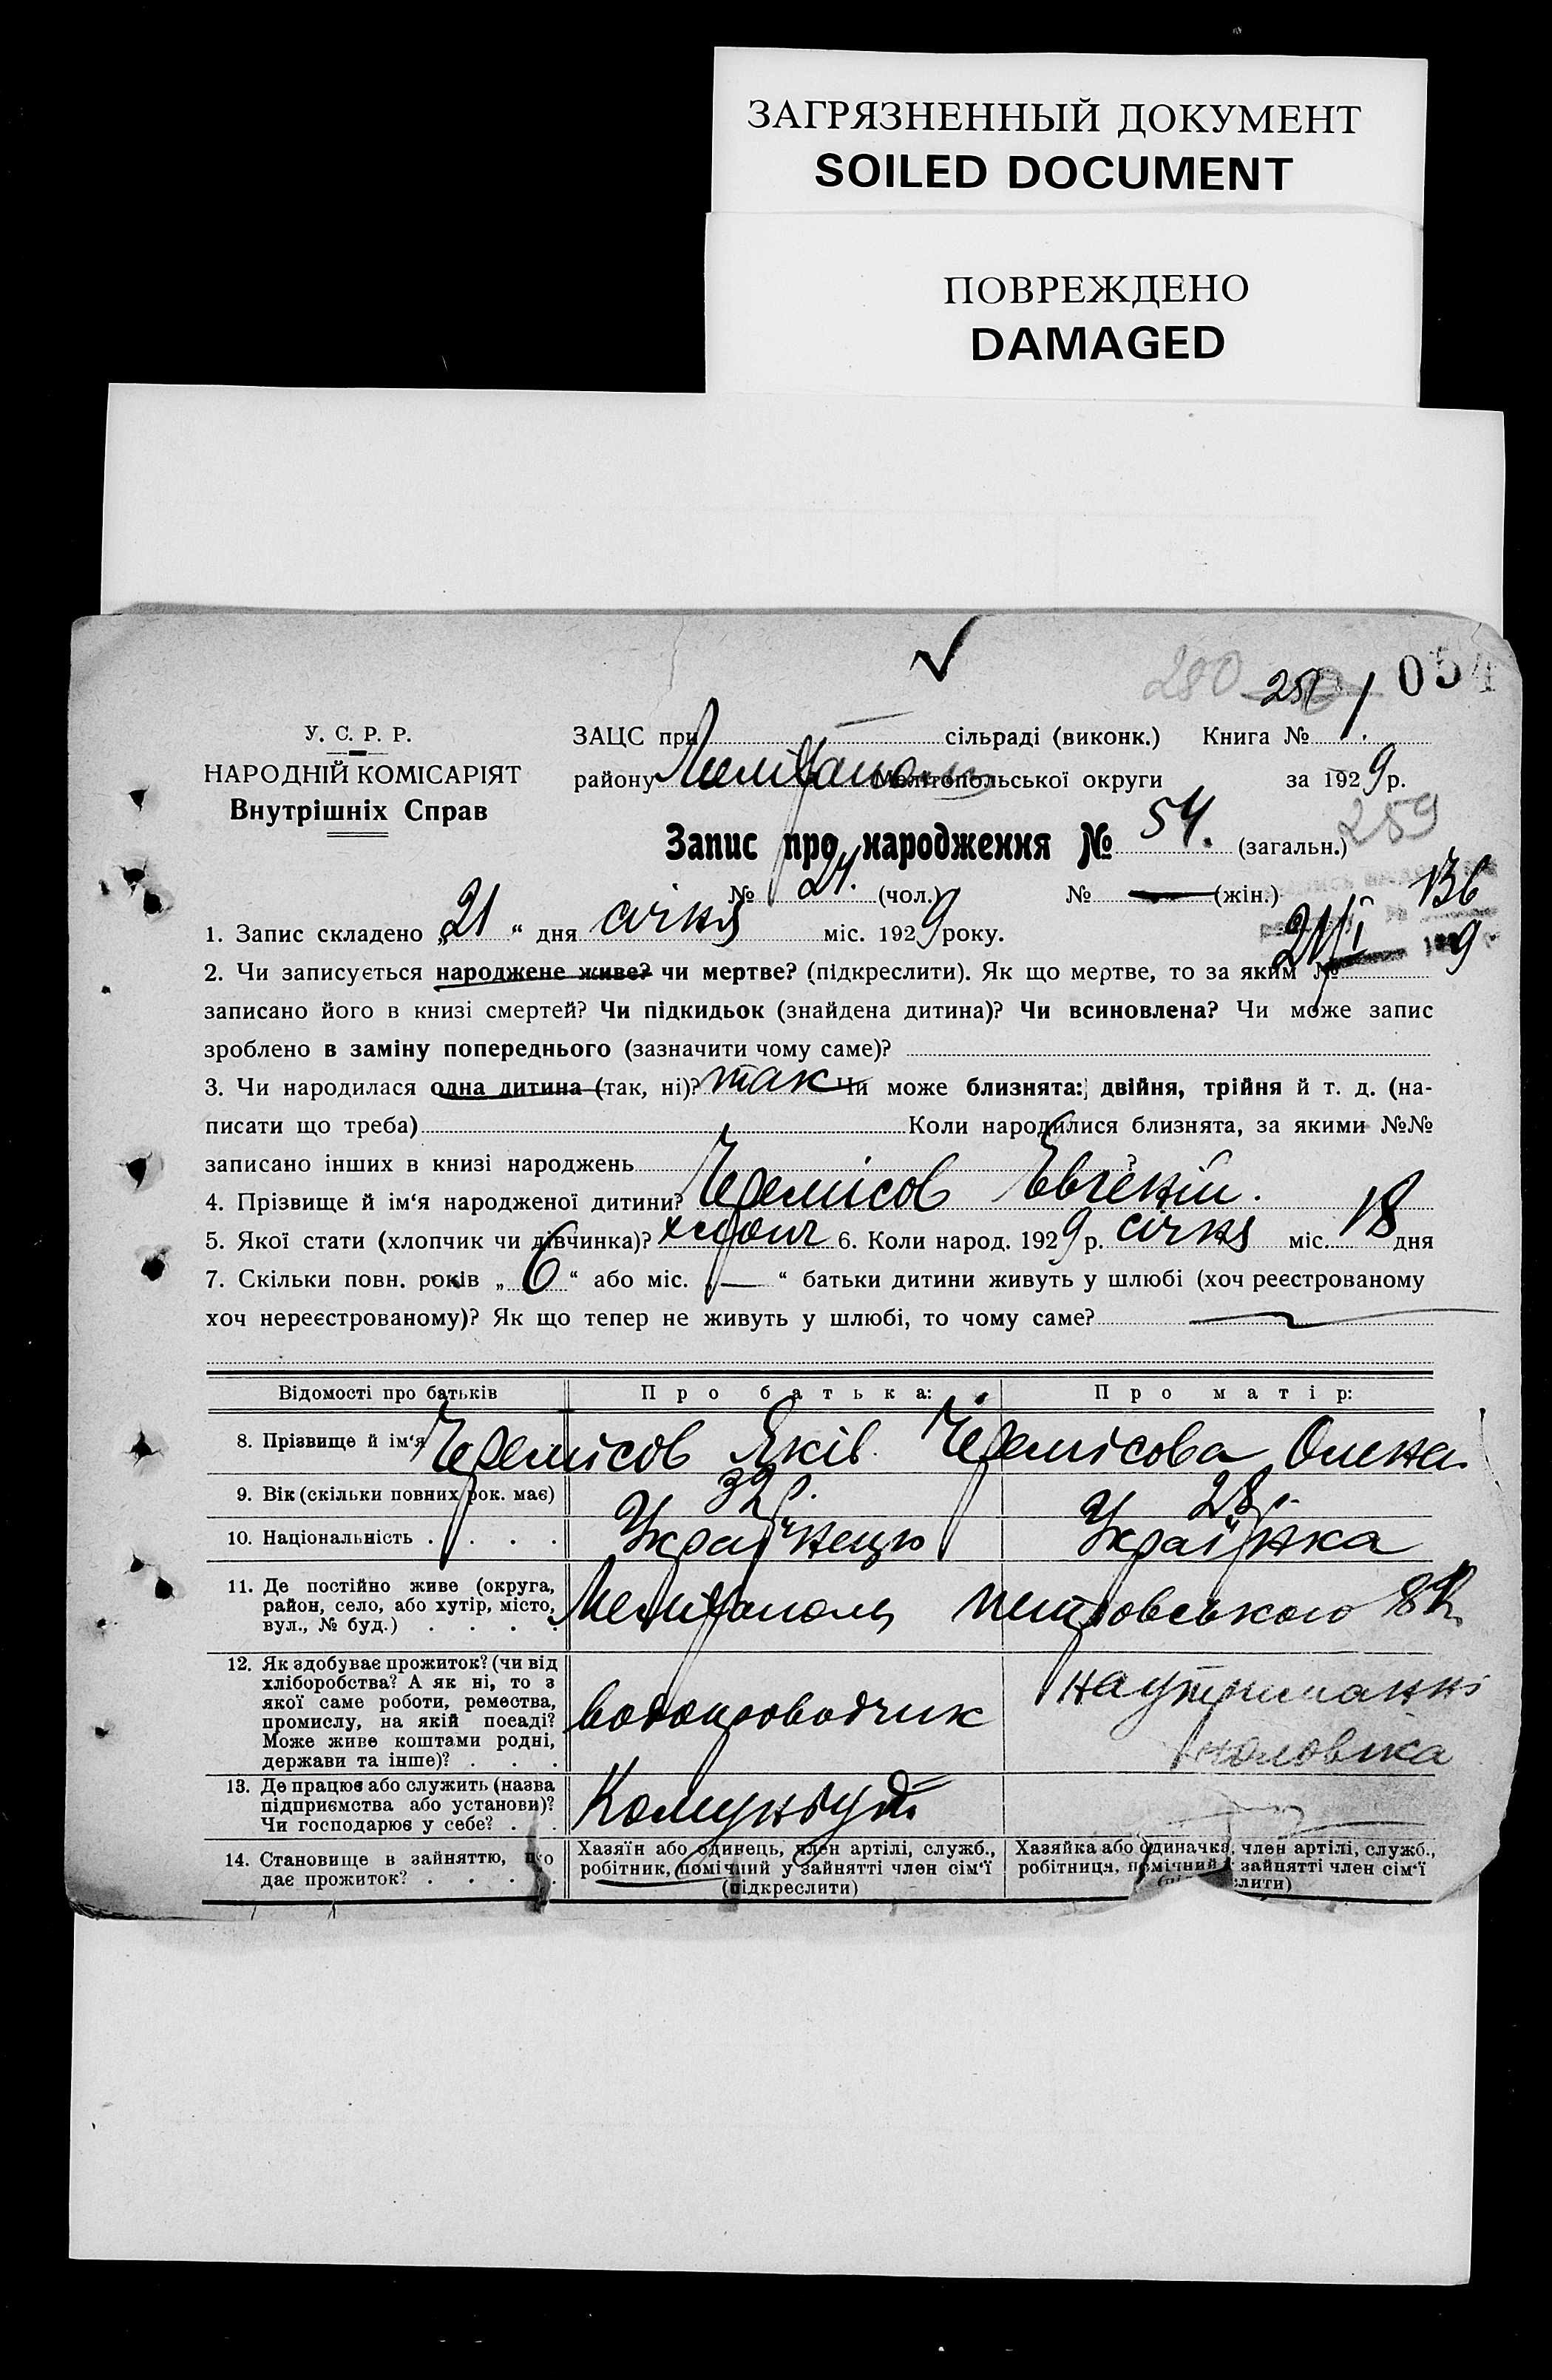 ЗАГРЯЗНЕННЫЙ ДОКУМЕНТ
SOILED DOCUMENT
ПОВРЕЖДЕНО
DAMAGED
280 054
У. С. Р. Р.
НАРОДНІЙ КОМІСАРІЯТ
Внутрішніх Справ
ЗАЦС при сільраді (виконк.) Книга № 1.
району Мелітополь Мелітопольської округи за 1929 р.
259
Запис про народження № 54. (загальн.)
№ 24. (чол.) № — (жін.) 136
1. Запис складено „21“ дня січня міс. 1929 року.
2. Чи записується народжене живе? чи мертве? (підкреслити). Як що мертве, то за яким №
записано його в книзі смертей? Чи підкидьок (знайдена дитина)? Чи всиновлена? Чи може запис
зроблено в заміну попереднього (зазначити чому саме)?
3. Чи народилася одна дитина (так, ні)? так Чи може близнята: двійня, трійня й т. д. (на-
писати що треба) Коли народилися близнята, за якими №№
записано інших в книзі народжень
4. Прізвище й ім‘я народженої дитини? Черемісов Евгеній.
5. Якої стати (хлопчик чи дівчинка)? хлопч 6. Коли народ. 1929 р. січня міс. 18 дня
7. Скільки повн. років „6“ або міс. „—“ батьки дитини живуть у шлюбі (хоч реєстрованому
хоч нереєстрованому)? Як що тепер не живуть у шлюбі, то чому саме?
Відомості про батьків Про батька: Про матір:
8. Прізвище й ім‘я Черемісов Яків. Черемісова Олена.
9. Вік (скільки повних рок. має) 32 р. 28 р.
10. Національність . . . . Українець Українка
11. Де постійно живе (округа,
район, село, або хутір, місто,
вул., № буд.) . . . . Мелітополь Петровського
12. Як здобуває прожиток? (чи від
хліборобства? А як ні, то з
якої саме роботи, ремества,
промислу, на якій посаді?
Може живе коштами родні,
держави та інше)? . . . водопроводчик на утриманні
чоловіка
13. Де працює або служить (назва
підприємства або установи)?
Чи господарює у себе? . .
14. Становище в зайняттю, що
дає прожиток? . . . . .
Хазяїн або одинець, член артілі, служб.,
робітник, помічний у зайнятті член сім‘ї
(підкреслити)
Хазяйка або одиначка, член артілі, служб.,
робітниця, помічний у зайнятті член сім‘ї
(підкреслити)